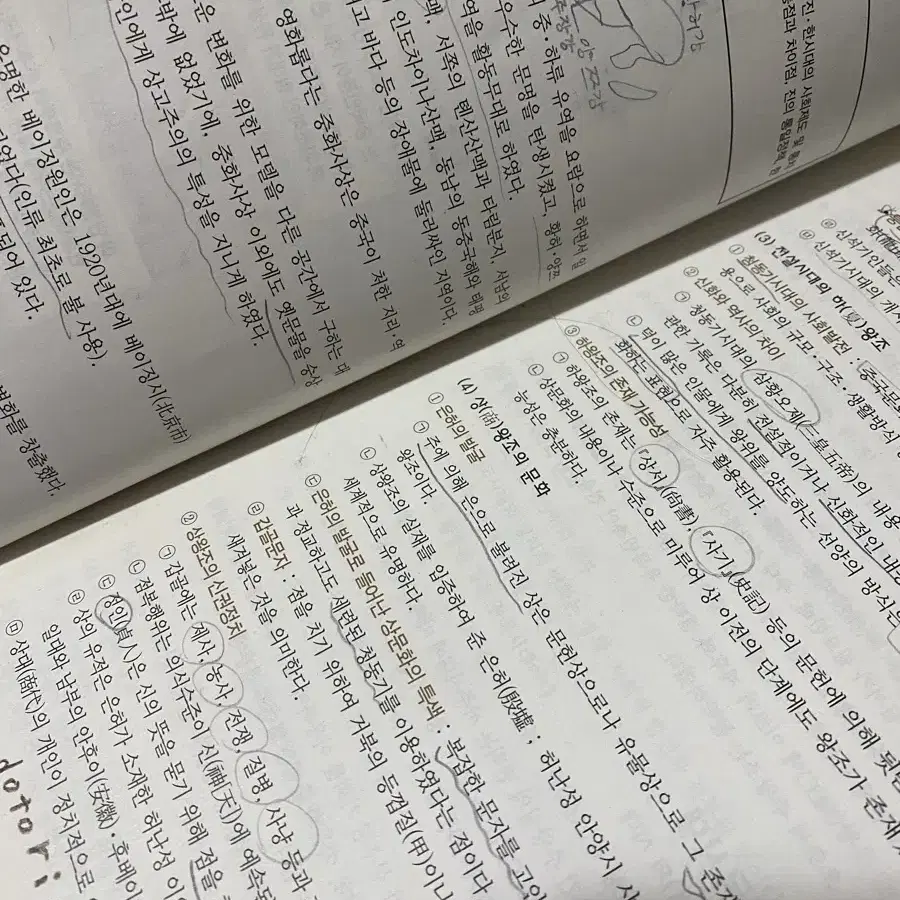 진·한시대의 사회제도 및 통치
통점과 차이점, 진의 통일정책
의 중·하류 유역을 요람으로 하면서 일
우수한 문명을 탄생시켰고, 황허·양쯔
역을 활동무대로 하였다.
맥, 서쪽의 톈산산맥과 타림분지, 서남의
인도차이나산맥, 동남의 동중국해와 태평
고 바다 등의 장애물에 둘러싸인 지역이다.
영화롭다는 중화사상은 중국이 처한 지리·역
운 변화를 위한 모델을 다른 공간에서 구하는 대
밖에 없었기에, 중화사상 이외에도 옛문물을 숭상
인에게 상고주의의 특성을 지니게 하였다.
유명한 베이징원인은 1920년대에 베이징시(北京市)
되었다(인류 최초로 불 사용).
되어 있다.
변화를 창출했다.
신석기인들은
신석기시대의 개시
(3) 전설시대의 하(夏)왕조
① 청동기시대의 사회발전 : 《중국문화
용으로 사회의 규모·구조·생활방식
② 신화와 역사의 차이
㉠ 청동기시대의 삼황오제(三皇五帝)의 내용
관한 기록은 다분히 전설적이거나 신화적인 내
㉡ 덕이 많은 인물에게 왕위를 양도하는 선양의 방식은
화하는 표현으로 자주 활용된다.
③ 하왕조의 존재 가능성
㉠ 하왕조의 존재는 『상서』(尙書), 『사기』(史記) 등의 문헌에 의해 뒷받
㉡ 상문화의 내용이나 수준으로 미루어 상 이전의 단계에도 왕조가 존재
능성은 충분하다.
(4) 상(商)왕조의 문화
① 은허의 발굴
㉠ 주에 의해 은으로 불려진 상은 문헌상으로나 유물상으로 그 존재
왕조이다.
㉡ 상왕조의 실재를 입증하여 준 은허(殷墟 ; 허난성 안양시 사
세계적으로 유명하다.
㉢ 은허의 발굴로 들어난 상문화의 특색 : 복잡한 문자를 고안
과 정교하고도 세련된 청동기를 이용하였다는 점이다
㉣ 갑골문자 : 점을 치기 위하여 거북의 등껍질(甲)이나
새겨넣은 것을 의미한다.
② 상왕조의 신권정치
㉠ 갑골에는 제사, 농사, 전쟁, 질병, 사냥 등과
㉡ 점복행위는 의식수준이 신(神天)에 예속된
㉢ 정인(貞人)은 신의 뜻을 묻기 위해 점을
㉣ 상의 유적은 은허가 소재한 허난성 이
일대와 남부의 안후이(安徽)·후베이
㉤ 상대(商代)의 개인이 정치적으로
dotori